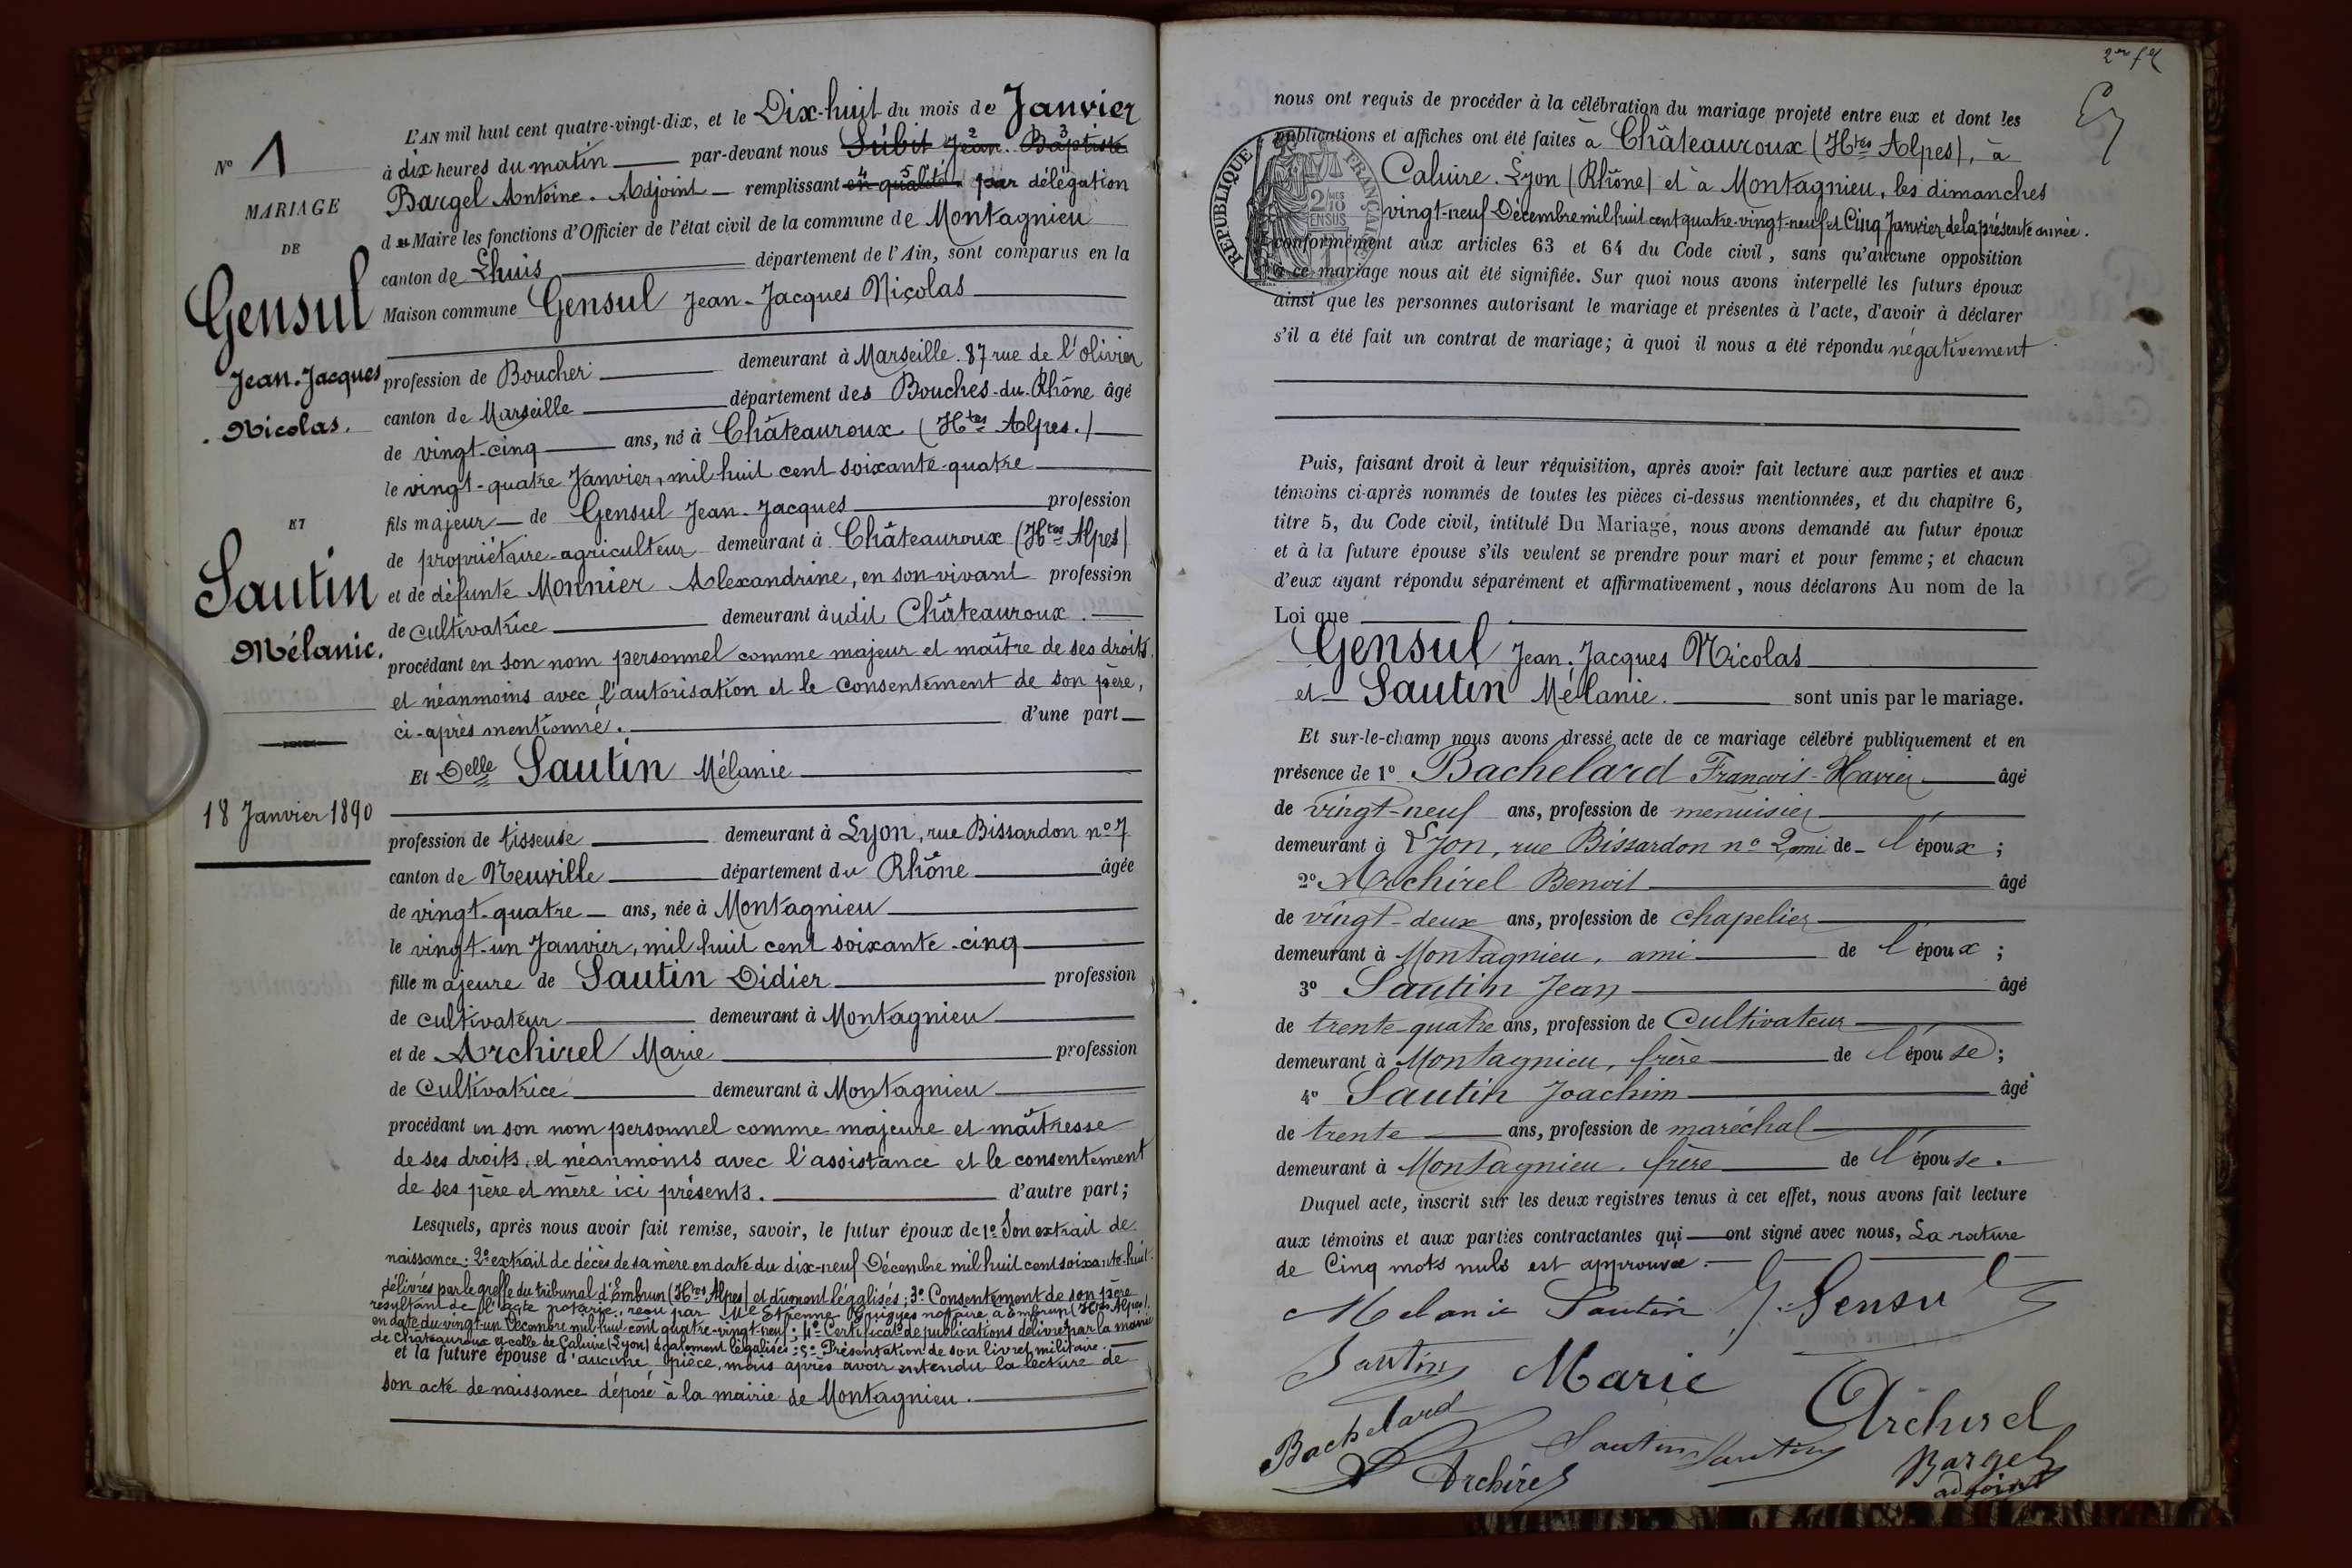 L'AN mil huit cent quatre-vingt-dix, et le Dix-huit du mois de Janvier
à dix heures du matin par-devant nous Subit Jean Baptiste
2 3
Bargel Antoine. Adjoint remplissant en qualité par délégation
4 5
du Maire les fonctions d'Officier de l'état civil de la commune de Montagnieu
canton de Lhuis département de l'Ain, sont comparus en la
Maison commune Gensul Jean-Jacques Nicolas
profession de Boucher demeurant à Marseille. 87 rue de l'olivier
canton de Marseille département des Bouches-du-Rhône âgé
de vingt-cinq ans, né à Châteauroux (Htes Alpes.)
le vingt-quatre Janvier, mil-huit cent soixante-quatre
fils majeur de Gensul Jean-Jacques profession
de propriétaire-agriculteur demeurant à Châteauroux (Htes Alpes)
et de défunte Monnier Alexandrine, en son vivant profession
de cultivatrice demeurant àudit Châteauroux.
procédant en son nom personnel comme majeur et maître de ses droits,
et néanmoins avec l'autorisation et le consentement de son père,
ci-après mentionné. d'une part
Et Delle Sautin Mélanie
profession de tisseuse demeurant à Lyon, rue Bissardon n° 7
canton de Neuville département du Rhône âgée
de vingt-quatre ans, née à Montagnieu
le vingt-un Janvier, mil huit cent soixante-cinq
fille majeure de Sautin Didier profession
de cultivateur demeurant à Montagnieu
et de Archirel Marie profession
de Cultivatrice demeurant à Montagnieu
procédant en son nom personnel comme majeure et maîtresse
de ses droits, et néanmoins avec l'assistance et le consentement
de ses père et mère ici présents. d'autre part;
Lesquels, après nous avoir fait remise, savoir, le futur époux de 1° Son extrait de
naissance; 2° extrait de décès de sa mère en date du dix-neuf Décembre mil huit cent soixante-huit.
délivrés par le greffe du tribunal d'Embrun (Htes Alpes) et dûment légalisés; 3° Consentement de son père
résultant de l'acte notarié, reçu par Me Etienne Guigues notaire à Embrun (Htes Alpes)
en date du vingt-un Décembre mil-huit-cent quatre-vingt-neuf; 4° Certificat de publications délivré par la mairie
de Châteauroux et celle de Caluire (Lyon) également légalisés; 5° Présentation de son livret militaire.
et la future épouse d'aucune pièce, mais après avoir entendu la lecture de
son acte de naissance déposé à la mairie de Montagnieu.
N° 1
MARIAGE
DE
Gensul
Jean-Jacques
Nicolas.
ET
Sautin
Mélanie.
18 Janvier 1890
nous ont requis de procéder à la célébration du mariage projeté entre eux et dont les
publications et affiches ont été faites à Châteauroux (Htes Alpes), à
Caluire. Lyon (Rhône) et à Montagnieu, les dimanches
vingt-neuf Décembre mil huit cent quatre-vingt-neuf et Cinq Janvier de la présente année.
conformément aux articles 63 et 64 du Code civil, sans qu'aucune opposition
à ce mariage nous ait été signifiée. Sur quoi nous avons interpellé les futurs époux
ainsi que les personnes autorisant le mariage et présentes à l'acte, d'avoir à déclarer
s'il a été fait un contrat de mariage; à quoi il nous a été répondu négativement
RÉPUBLIQUE FRANÇAISE
2/10
EN SUS
Puis, faisant droit à leur réquisition, après avoir fait lecture aux parties et aux
témoins ci-après nommés de toutes les pièces ci-dessus mentionnées, et du chapitre 6,
titre 5, du Code civil, intitulé Du Mariage, nous avons demandé au futur époux
et à la future épouse s'ils veulent se prendre pour mari et pour femme; et chacun
d'eux ayant répondu séparément et affirmativement, nous déclarons Au nom de la
Loi que
Gensul Jean-Jacques Nicolas
et Sautin Mélanie. sont unis par le mariage.
Et sur-le-champ nous avons dressé acte de ce mariage célébré publiquement et en
présence de 1° Bachelard François-Xavier âgé
de vingt-neuf ans, profession de menuisier
demeurant à Lyon, rue Bissardon n° 2, ami de l'époux;
2° Archirel Benoit âgé
de vingt-deux ans, profession de chapelier
demeurant à Montagnieu, ami de l'époux;
3° Sautin Jean âgé
de trente-quatre ans, profession de Cultivateur
demeurant à Montagnieu, frère de l'épouse;
4° Sautin Joachim âgé
de trente ans, profession de maréchal
demeurant à Montagnieu. frère de l'épouse.
Duquel acte, inscrit sur les deux registres tenus à cet effet, nous avons fait lecture
aux témoins et aux parties contractantes qui ont signé avec nous, La rature
de Cinq mots nuls est approuvée.
Melanie Sautin J. Gensul
Sautin Marie Archirel
Bachelard Sautin Sautin
Archirel Bargel
adjoint